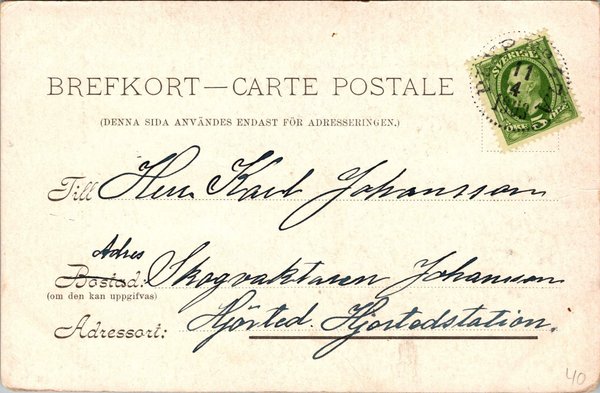 BREFKORT — CARTE POSTALE
(DENNA SIDA ANVÄNDES ENDAST FÖR ADRESSERINGEN.)
SVERIGE
11
4
ÖRE 5 ÖRE
Till Herr Karl Johansson
Adres
Bostad: Skogvaktaren Johansson
(om den kan uppgifvas)
Adressort: Hjorted. Hjortedstation.
40